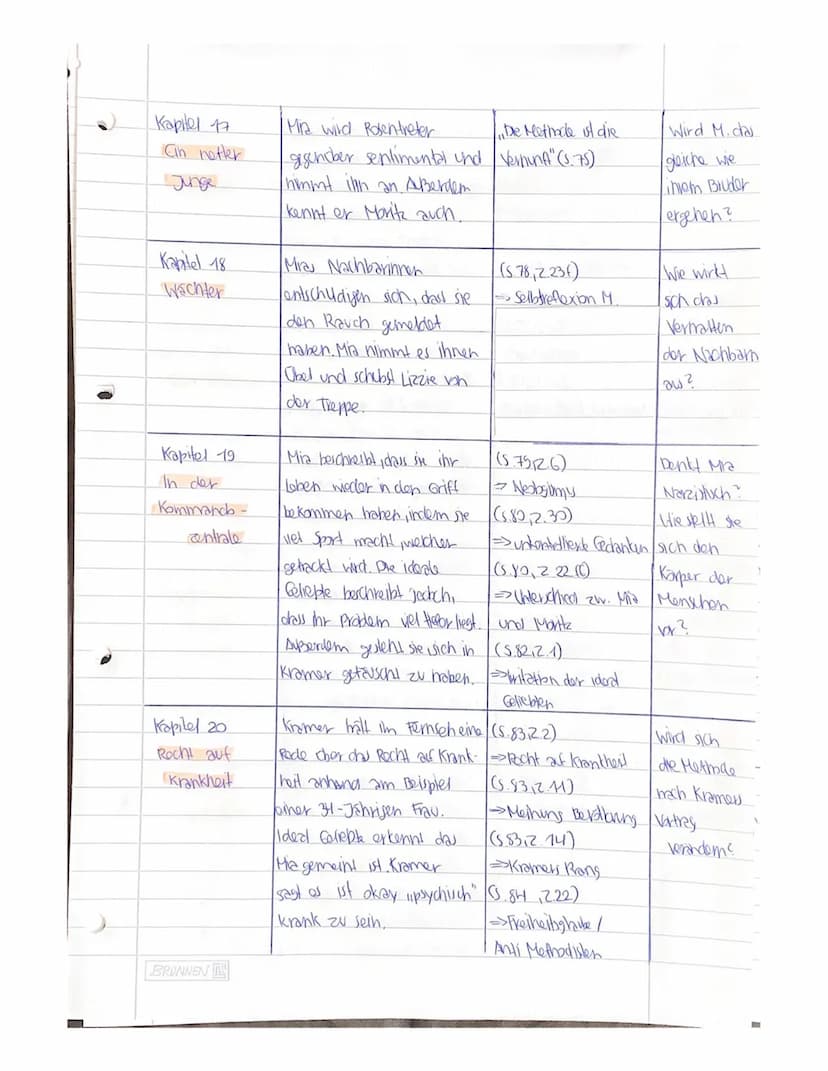 Kapitel 17
Ein netter
Junge
Mia wird Rosentreter
gegenüber sentimental und
nimmt ihn an. Außerdem
kennt er Moritz auch.
„Die Methode ist die
Vernunft" (S. 75)
Wird M. das
gleiche wie
ihrem Bruder
ergehen?
Kapitel 18
Wächter
Mias Nachbarinnen
entschudigen sich, dass sie
den Rauch gemeldet
haben. Mia nimmt es ihnen
Übel und schubst Lizzie von
der Treppe.
(S 78, Z. 23f)
→ Selbstreflexion M.
Wie wirkt
sich das
Verhalten
der Nachbarn
aus?
Kapitel 19
In der
Kommando-
zentrale
Mia beschreibt, dass sie ihr
Leben wieder in den Griff
bekommen haben, indem sie
viel Sport macht, welcher
getrackt wird. Die ideale
Geliebte beschreibt jedoch,
dass ihr Problem viel tiefer liegt.
Außerdem gesteht sie sich in
Kramer getäuscht zu haben.
(S. 79, Z 6)
⇒
(S. 80, Z. 30)
⇒ Gedanken
(S. 80, Z 22 f)
⇒ Unterschied zw. Mia
und Moritz
(S. 82, Z. 1)
⇒ Irritation der ideal
Geliebten
Denkt Mia
Narzistisch?
Wie stellt sie
sich den
Körper der
Menschen
vor?
Kapitel 20
Recht auf
Krankheit
Kramer hält im Fernseh eine
Rede über das Recht auf Krank-
heit anhand am Beispiel
einer 34-Jährigen Frau.
Ideal Geliebte erkennt das
Mia gemeint ist. Kramer
sagt es ist okay „psychisch"
krank zu sein.
(S. 83, Z 2)
⇒ Recht auf Krankheit
(S. 83, Z. 11)
→ Meinungs
(S 83, Z 14)
⇒ Kramers
(S. 84, Z. 22)
⇒ Freiheitsglaube /
Anti Methodisten
Wird sich
die Methode
nach Kramers
Vortrag
verändern?
BRUNNEN